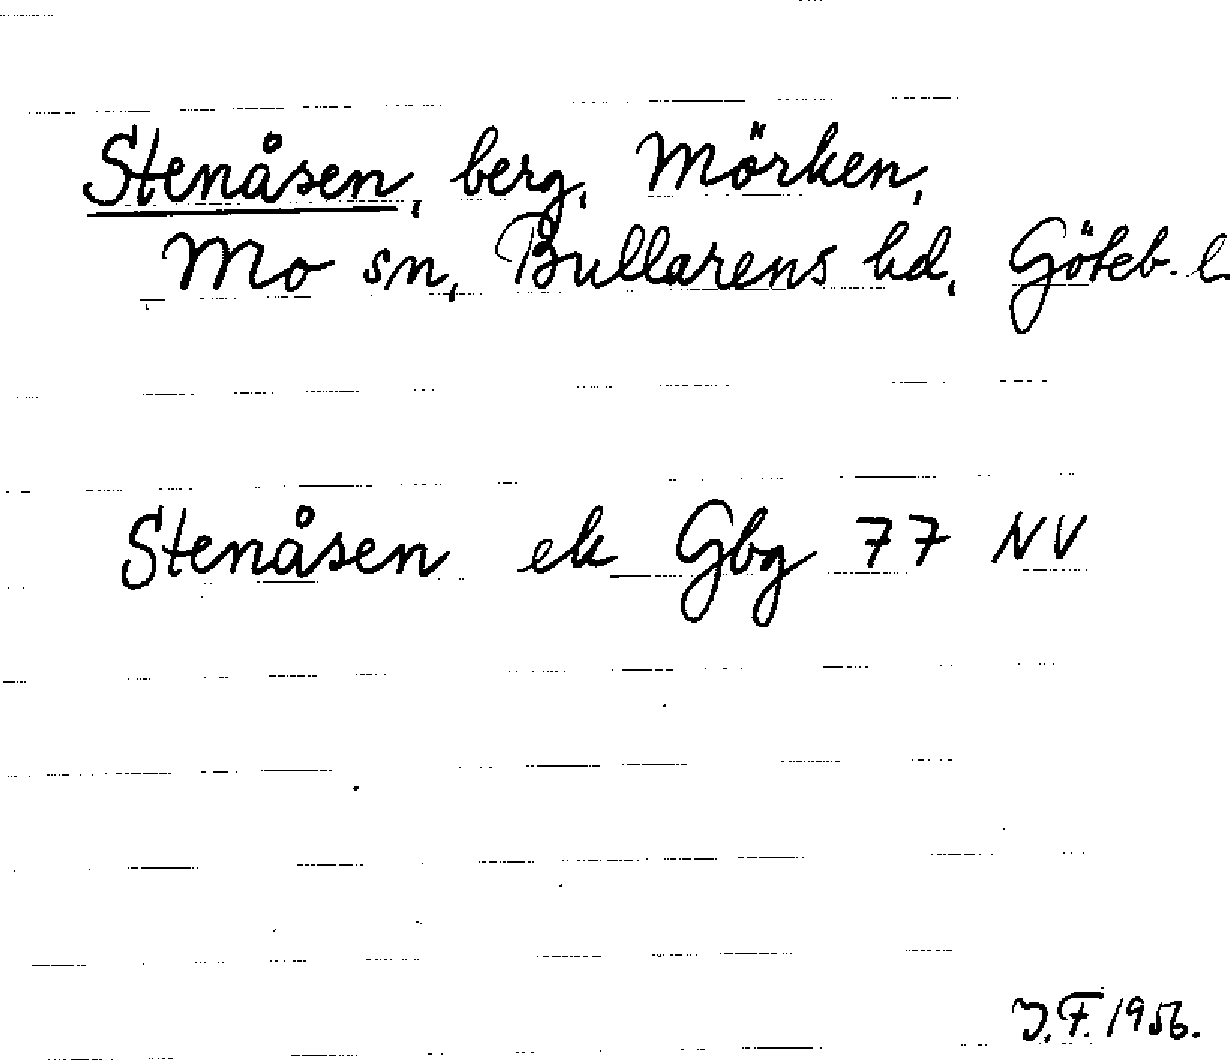 Stenåsen, berg, Mörken,
Mo sn, Bullarens hd, Göteb. l.
Stenåsen ek Gbg 77 NV
J.F. 1956.